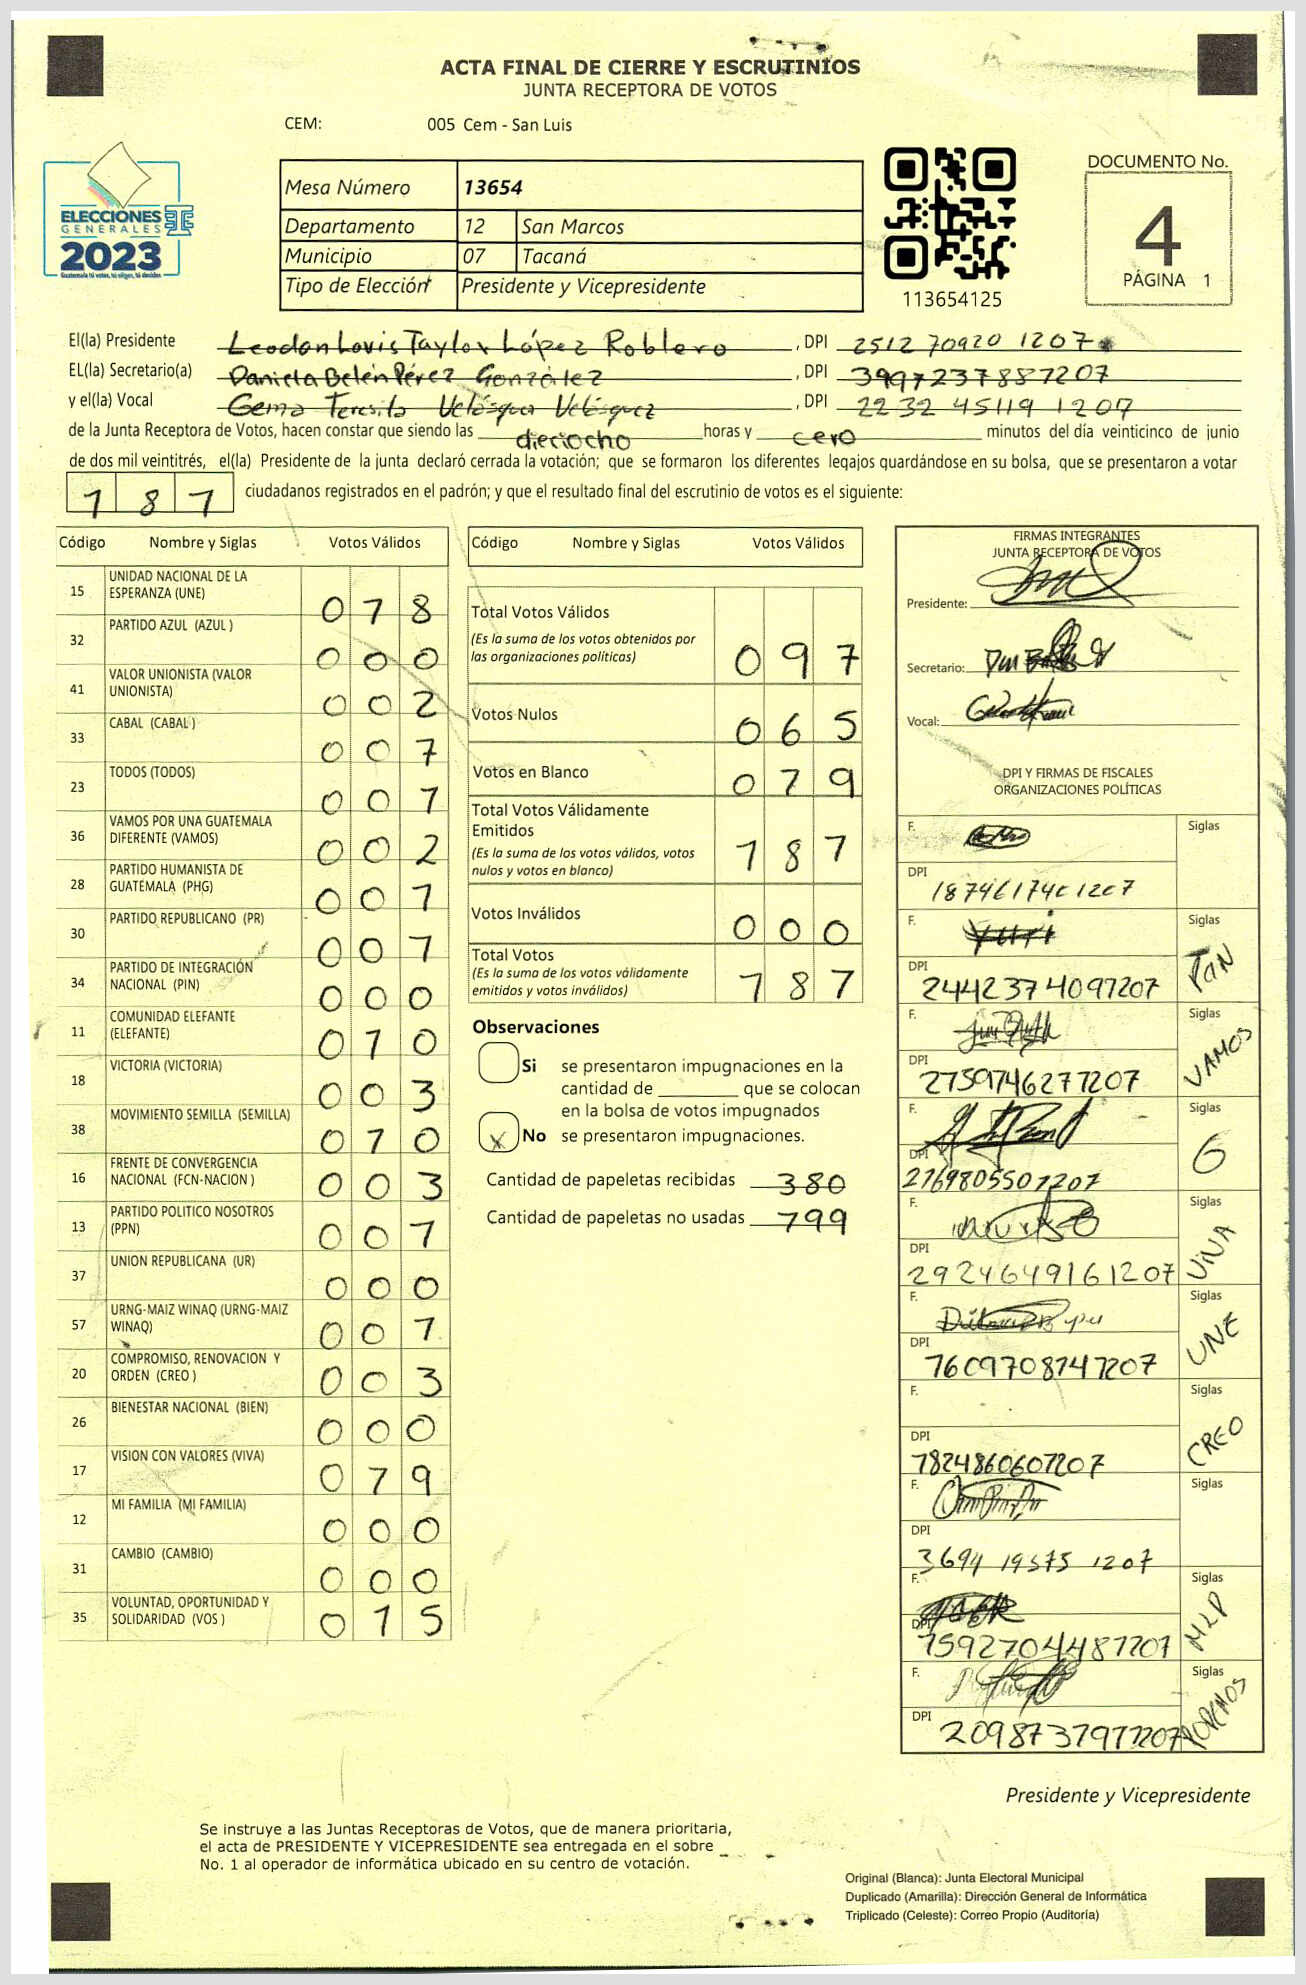 ACTA FINAL DE CIERRE Y ESCRUTINIOS
JUNTA RECEPTORA DE VOTOS
CEM: 005 Cem - San Luis
ELECCIONES
GENERALES
2023
Guatemala tú votas, tú eliges, tú decides
Mesa Número 13654
Departamento 12 San Marcos
Municipio 07 Tacaná
Tipo de Elección Presidente y Vicepresidente
113654125
DOCUMENTO No.
4
PÁGINA 1
El(la) Presidente Leodan Lovis Taylor López Roblero, DPI 2512 70920 1207
EL(la) Secretario(a) Daniela Belén Pérez González, DPI 3997237881207
y el(la) Vocal Gema Teresita Velásquez Velásquez, DPI 2232 45119 1207
de la Junta Receptora de Votos, hacen constar que siendo las dieciocho horas y cero minutos del día veinticinco de junio
de dos mil veintitrés, el(la) Presidente de la junta declaró cerrada la votación; que se formaron los diferentes legajos quardándose en su bolsa, que se presentaron a votar
1 8 1 ciudadanos registrados en el padrón; y que el resultado final del escrutinio de votos es el siguiente:
Código Nombre y Siglas Votos Válidos
15 UNIDAD NACIONAL DE LA ESPERANZA (UNE) 0 1 8
32 PARTIDO AZUL (AZUL ) 0 0 0
41 VALOR UNIONISTA (VALOR UNIONISTA) 0 0 2
33 CABAL (CABAL ) 0 0 7
23 TODOS (TODOS) 0 0 1
36 VAMOS POR UNA GUATEMALA DIFERENTE (VAMOS) 0 0 2
28 PARTIDO HUMANISTA DE GUATEMALA (PHG) 0 0 1
30 PARTIDO REPUBLICANO (PR) 0 0 1
34 PARTIDO DE INTEGRACIÓN NACIONAL (PIN) 0 0 0
11 COMUNIDAD ELEFANTE (ELEFANTE) 0 1 0
18 VICTORIA (VICTORIA) 0 0 3
38 MOVIMIENTO SEMILLA (SEMILLA) 0 1 0
16 FRENTE DE CONVERGENCIA NACIONAL (FCN-NACION ) 0 0 3
13 PARTIDO POLITICO NOSOTROS (PPN) 0 0 1
37 UNION REPUBLICANA (UR) 0 0 0
57 URNG-MAIZ WINAQ (URNG-MAIZ WINAQ) 0 0 1
20 COMPROMISO, RENOVACION Y ORDEN (CREO ) 0 0 3
26 BIENESTAR NACIONAL (BIEN) 0 0 0
17 VISION CON VALORES (VIVA) 0 1 9
12 MI FAMILIA (MI FAMILIA) 0 0 0
31 CAMBIO (CAMBIO) 0 0 0
35 VOLUNTAD, OPORTUNIDAD Y SOLIDARIDAD (VOS ) 0 1 5
Código Nombre y Siglas Votos Válidos
Total Votos Válidos
(Es la suma de los votos obtenidos por
las organizaciones politicas) 0 9 7
Votos Nulos 0 6 5
Votos en Blanco 0 1 9
Total Votos Válidamente
Emitidos
(Es la suma de los votos válidos, votos
nulos y votos en blanco) 1 8 1
Votos Inválidos 0 0 0
Total Votos
(Es la suma de los votos válidamente
emitidos y votos inválidos) 1 8 1
Observaciones
Si se presentaron impugnaciones en la
cantidad de ________ que se colocan
en la bolsa de votos impugnados
X No se presentaron impugnaciones.
Cantidad de papeletas recibidas 380
Cantidad de papeletas no usadas 199
FIRMAS INTEGRANTES
JUNTA RECEPTORA DE VOTOS
Presidente:
Secretario:
Vocal:
DPI Y FIRMAS DE FISCALES
ORGANIZACIONES POLÍTICAS
F. Siglas
DPI 1874617401207
F. Yuri Siglas
DPI 2442374091207
F. Siglas VAMOS
DPI
F. Siglas
DPI
F. Siglas VIVA
DPI 2924649161207
F. Siglas UNE
DPI
F. Siglas CREO
DPI 1824860601207
F. Siglas
DPI 3694 19575 1207
F. Siglas MLP
DPI 1592704481207
F. Siglas PODEMOS
DPI
Presidente y Vicepresidente
Se instruye a las Juntas Receptoras de Votos, que de manera prioritaria,
el acta de PRESIDENTE Y VICEPRESIDENTE sea entregada en el sobre
No. 1 al operador de informática ubicado en su centro de votación.
Original (Blanca): Junta Electoral Municipal
Duplicado (Amarilla): Dirección General de Informática
Triplicado (Celeste): Correo Propio (Auditoría)